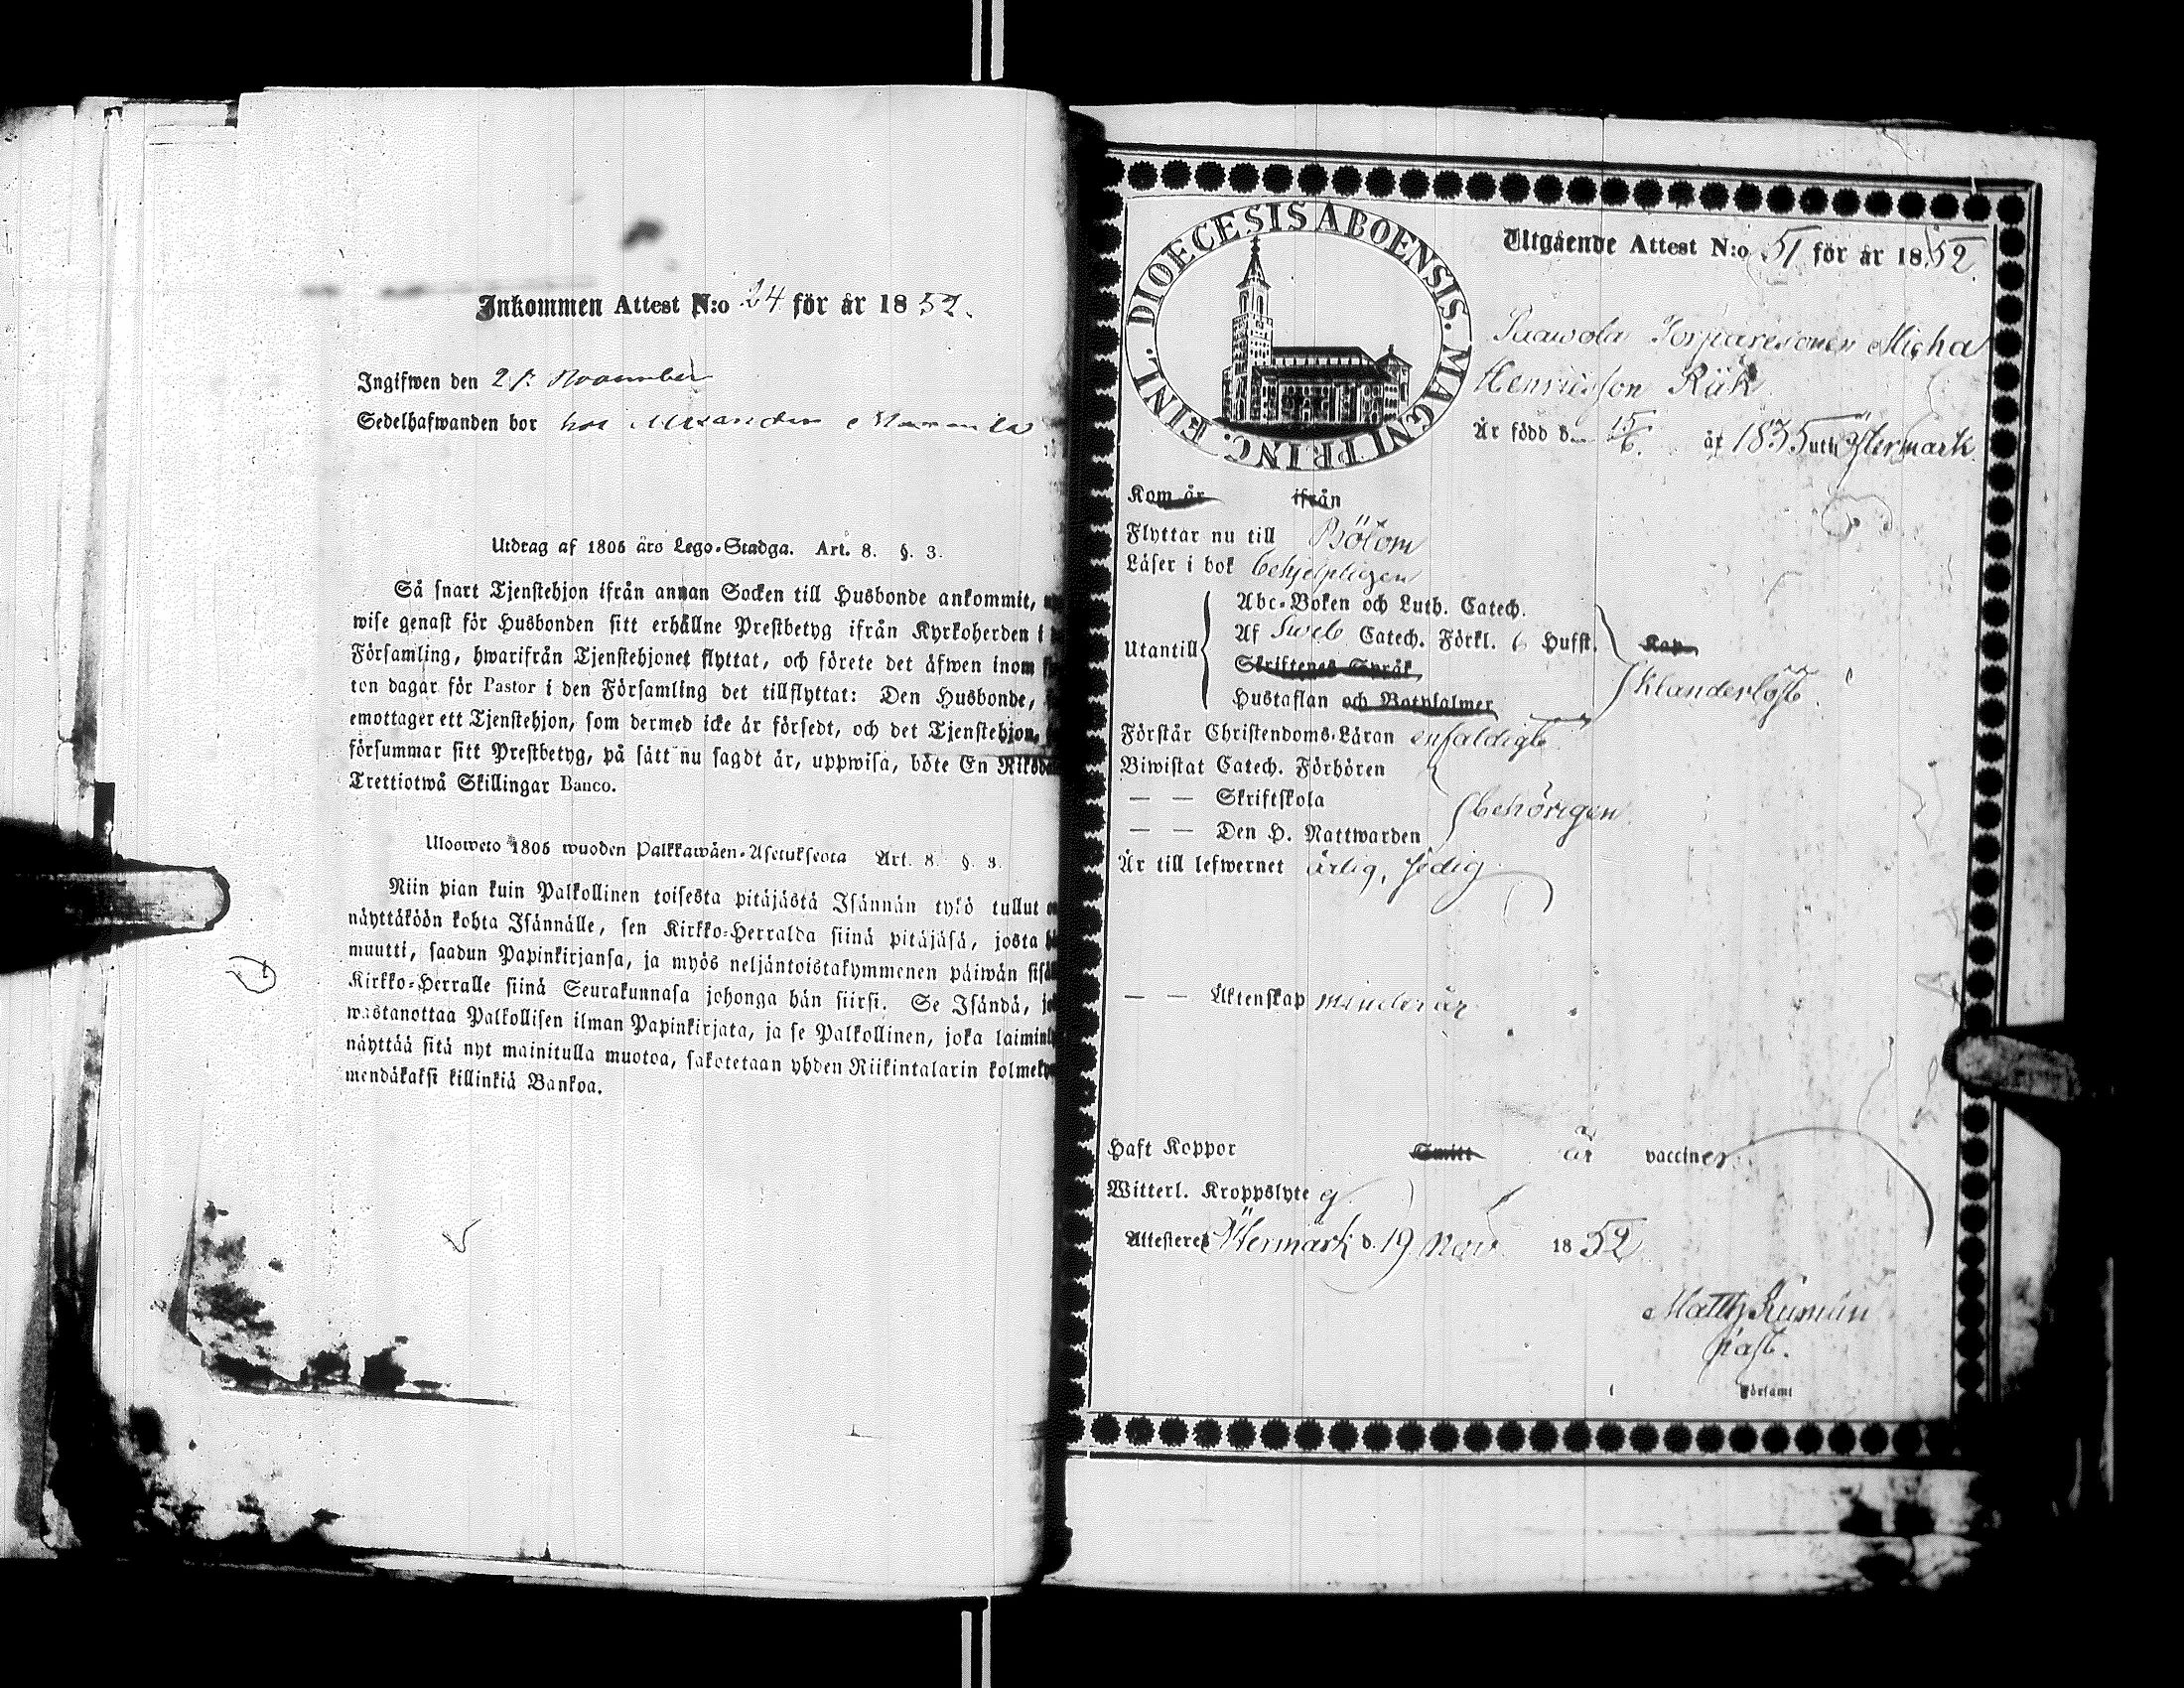 Inkommen Attest N:o 24 för år 1852.
Ingifwen den 21 November
Sedelhafwanden bor hos
Utdrag af 1805 års Lego-Stadga. Art. 8. §. 3.
Så snart Tjenstehjon ifrån annan Socken till Husbonde ankommit,
wise genast för Husbonden sitt erhållne Prestbetyg ifrån Kyrkoherden i
Församling, hwarifrån Tjenstehjonet flyttat, och förete det äfwen inom
ton dagar för Pastor i den Församling det tillflyttat: Den Husbonde,
emottager ett Tjenstehjon, som dermed icke är försedt, och det Tjenstehjon,
försummar sitt Prestbetyg, på sätt nu sagdt är, uppwisa, böte En
Trettiotwå Skillingar Banco.
Ulosweto 1805 wuoden Palkkawäen-Asetuksesta Art. 8. §. 3.
Niin pian kuin Palkollinen toisesta pitäjästä Isännän tykö tullut
näyttäköön kohta Isännälle, sen Kirkko-Herralda siinä pitäjäsä, josta
muutti, saadun Papinkirjansa, ja myös neljäntoistakymmenen päiwän
Kirkko-Herralle siinä Seurakunnasa johonga hän siirsi. Se Isändä,
wastanottaa Palkollisen ilman Papinkirjata, ja se Palkollinen, joka
näyttää sitä nyt mainitulla muotoa, sakotetaan yhden Riikintalarin
mendäkaksi killinkiä Bankoa.
DIOECESIS ABOENSIS. MAGNI PRINC. FINL.
Utgående Attest N:o 51 för år 1852.
Torparesonen Micha
Henriksson
Är född den 15/6. år 1835 uti Östermark.
Kom år ifrån
Flyttar nu till Bötom
Läser i bok behjelpligen
Utantill
Abc-Boken och Luth. Catech.
Af Sweb Catech. Förkl. 6 Hufst. Kap.
Skriftenes Språk
Hustaflan och Botpsalmer
klanderlöst.
Förstår Christendoms-Läran enfaldigt
Biwistat Catech. Förhören
— — Skriftskola
behörigen
— — Den H. Nattwarden
Är till lefwernet ärlig, sedig
— — Äktenskap minderår
Haft Koppor Smitt är vacciner
Witterl. Kroppslyte ej
Attesteres Östermark d. 19 Nov. 1852
Matth
Past.
i Församl